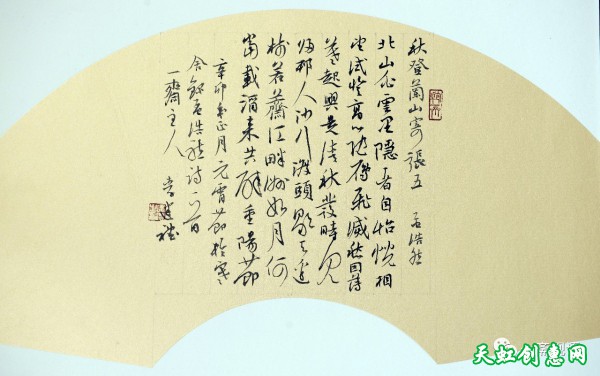 秋登蘭山寄張五 孟浩然
北山白雲里隱者自怡悦相
望試登高心随雁飛滅愁因薄
暮起興是清秋發時見
歸邨人沙行渡頭歇天邊
樹若薺江畔洲如月何
當載酒來共醉重陽節
辛卯年正月元宵節於寒
舍録孟浩然詩一首
一齋主人
天虹创惠网